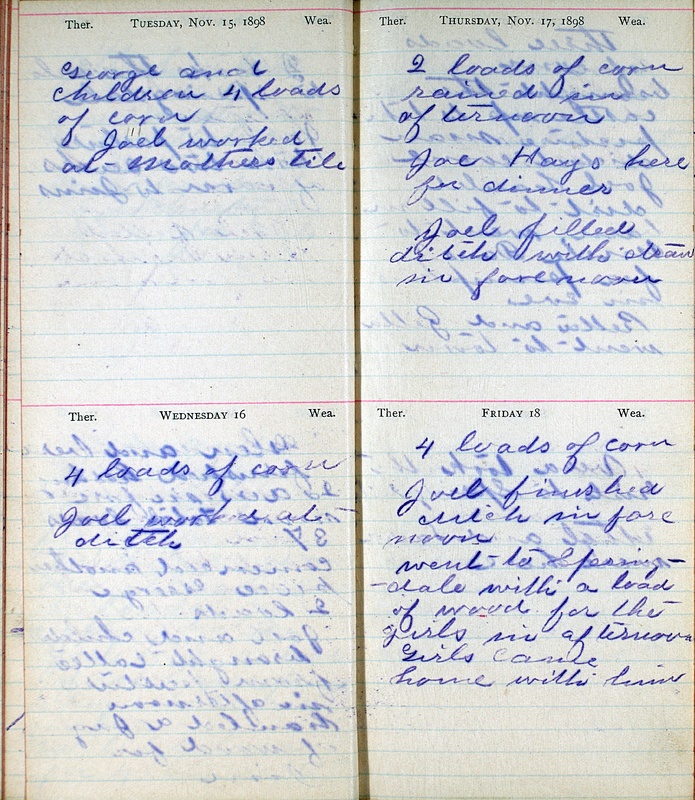 Ther. TUESDAY, NOV. 15, 1898 Wea.
George and
children 4 loads
of corn
Joel worked
at Mothers tile
Ther. WEDNESDAY 16 Wea.
4 loads of corn
Joel worked at
ditch
Ther. THURSDAY, NOV. 17, 1898 Wea.
2 loads of corn
rained in
afternoon
Joe Hays here
for dinner
Joel filled
ditch with
in forenoon
Ther. FRIDAY 18 Wea.
4 loads of corn
Joel finished
ditch in fore
noon
went to Spring-
-dale with a load
of wood for the
girls in afternoon
Girls came
home with him